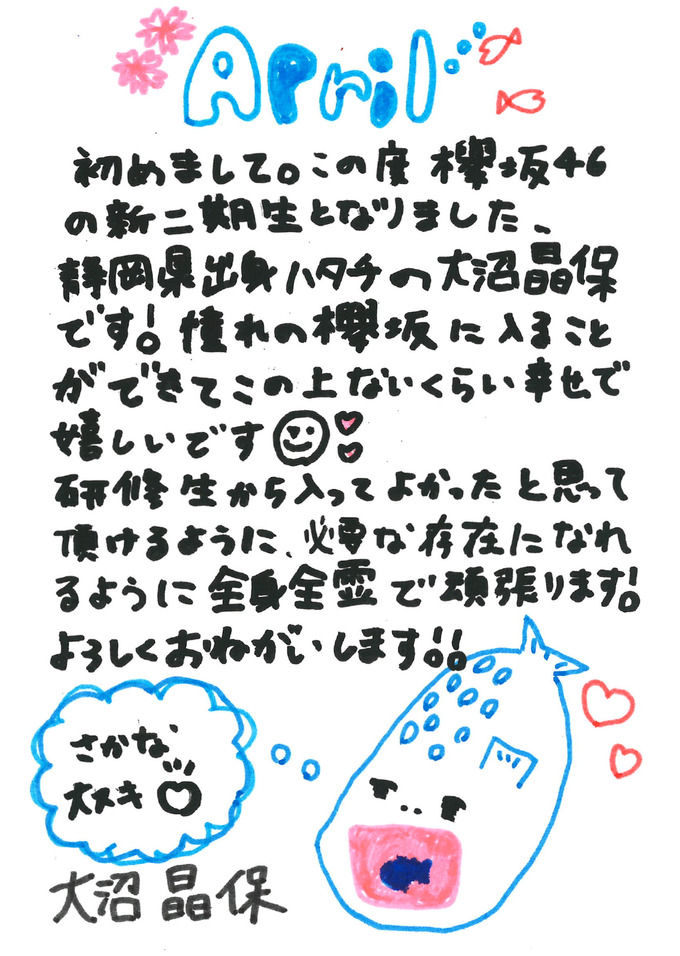 April
初めまして。この度 欅坂46
の新二期生となりました、
静岡県出身ハタチの大沼晶保
です！憧れの欅坂に入ること
ができてこの上ないくらい幸せで
嬉しいです
研修生から入ってよかったと思って
頂けるように、必要な存在になれ
るように全身全霊で頑張ります！
よろしくおねがいします！！
さかな
大スキ
大沼 晶保